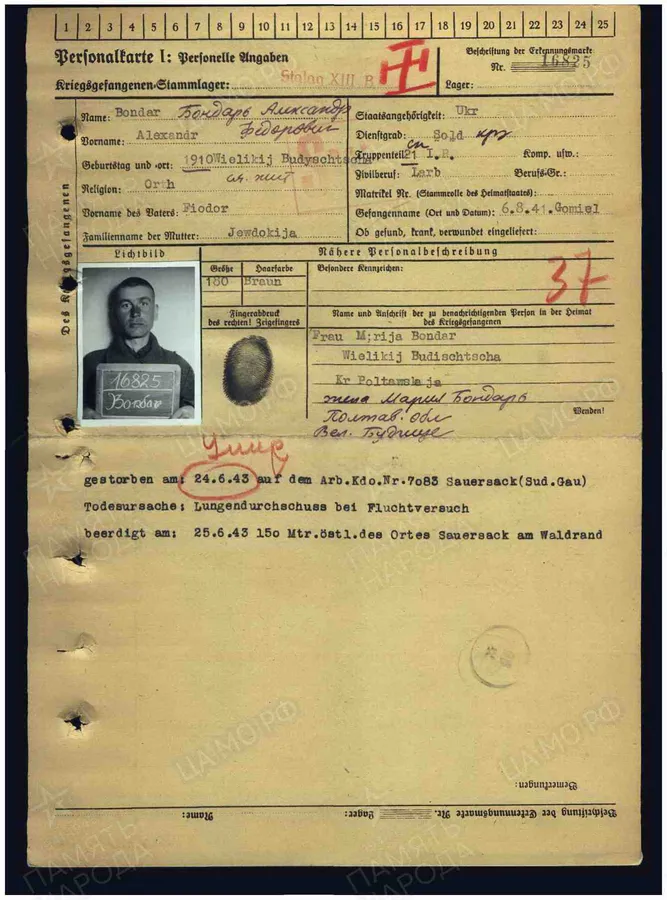 1 2 3 4 5 6 7 8 9 10 11 12 13 14 15 16 17 18 19 20 21 22 23 24 25
Personalkarte I: Personelle Angaben
Kriegsgefangenen-Stammlager: Stalag XIII B
Beschriftung der Erkennungsmarke
Nr. 16825
Lager:
Des Kriegsgefangenen
Name: Bondar Бондарь Александр
Vorname: Alexandr Федорович
Geburtstag und -ort: 1910 Wielikij Budyschtscha
Religion: Orth
Vorname des Vaters: Fiodor
Familienname der Mutter: Jewdokija
Staatsangehörigkeit: Ukr
Dienstgrad: Sold
Truppenteil: 21 I.R. Komp. usw.:
Zivilberuf: Larb Berufs-Gr.:
Matrikel Nr. (Stammrolle des Heimatstaates):
Gefangennahme (Ort und Datum): 6.8.41. Gomiel
Ob gesund, krank, verwundet eingeliefert:
Lichtbild
Nähere Personalbeschreibung
Größe Haarfarbe
180 Braun
Besondere Kennzeichen:
37
Fingerabdruck
des rechten! Zeigefingers
Name und Anschrift der zu benachrichtigenden Person in der Heimat
des Kriegsgefangenen
Frau M;rija Bondar
Wielikij Budischtscha
Kr Poltawskaja
жена Мария Бондарь
Полтав. обл
Вел. Будище
Wenden!
16825
Bondar
Умир
gestorben am: 24.6.43 auf dem Arb.Kdo.Nr.7083 Sauersack(Sud.Gau)
Todesursache: Lungendurchschuss bei Fluchtversuch
beerdigt am: 25.6.43 150 Mtr.östl.des Ortes Sauersack am Waldrand
Bemerkungen:
Beschriftung der Erkennungsmarke Nr. Lager: Name:
ЦАМО.РФ
ПАМЯТЬ
НАРОДА